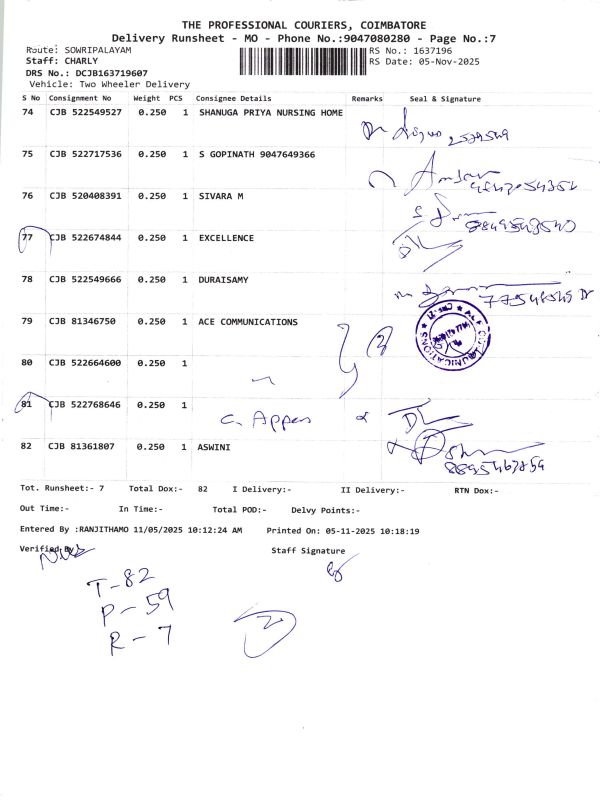 THE PROFESSIONAL COURIERS, COIMBATORE
Delivery Runsheet - MO - Phone No.:9047080280 - Page No.:7
Route: SOWRIPALAYAM RS No.: 1637196
Staff: CHARLY RS Date: 05-Nov-2025
DRS No.: DCJB163719607
Vehicle: Two Wheeler Delivery
S No Consignment No Weight PCS Consignee Details Remarks Seal & Signature
74 CJB 522549527 0.250 1 SHANUGA PRIYA NURSING HOME
75 CJB 522717536 0.250 1 S GOPINATH 9047649366
76 CJB 520408391 0.250 1 SIVARA M
77 CJB 522674844 0.250 1 EXCELLENCE
78 CJB 522549666 0.250 1 DURAISAMY
79 CJB 81346750 0.250 1 ACE COMMUNICATIONS
80 CJB 522664600 0.250 1
81 CJB 522768646 0.250 1
82 CJB 81361807 0.250 1 ASWINI
Tot. Runsheet:- 7 Total Dox:- 82 I Delivery:- II Delivery:- RTN Dox:-
Out Time:- In Time:- Total POD:- Delvy Points:-
Entered By :RANJITHAMO 11/05/2025 10:12:24 AM Printed On: 05-11-2025 10:18:19
Verified By Staff Signature
T-82
P-59
R-7